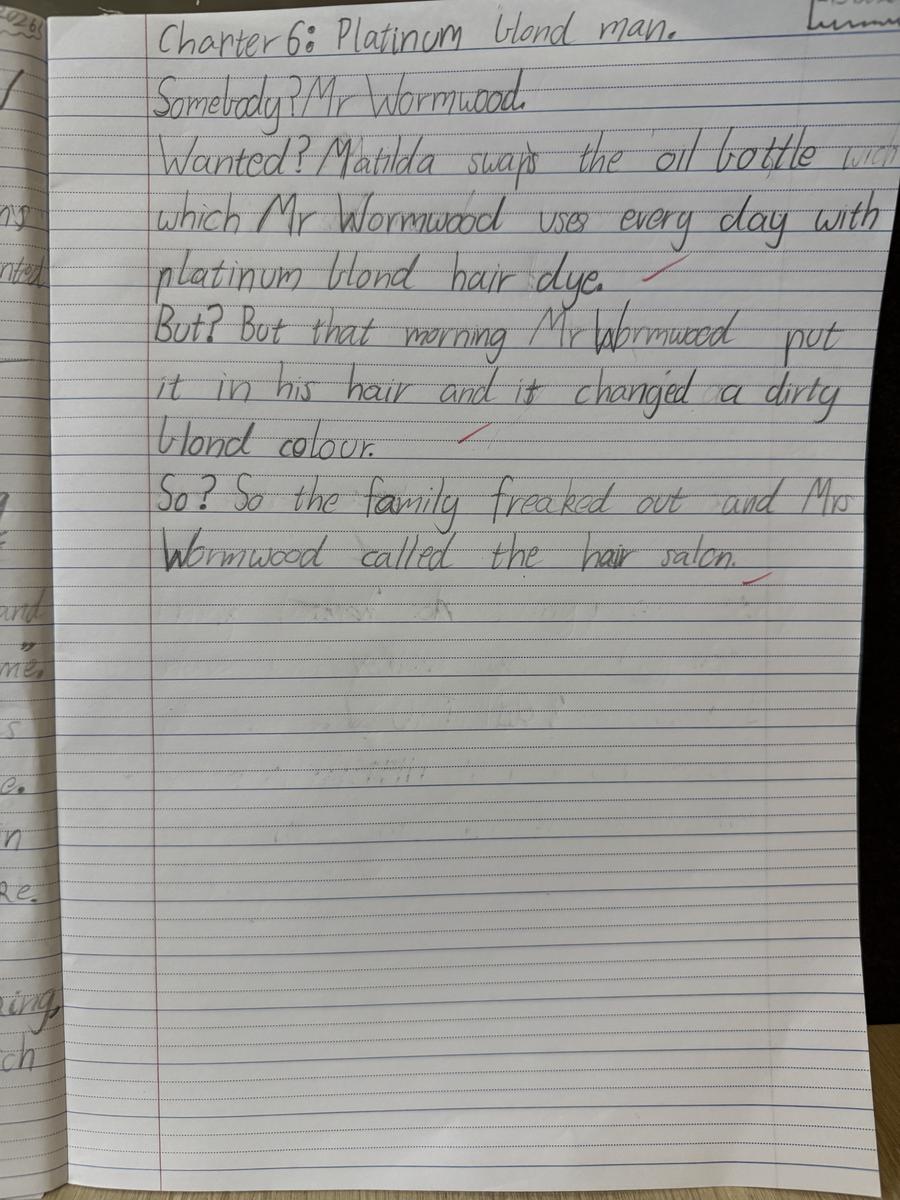 2026
Charter 6: Platinum blond man.
Somebody? Mr Wormwood.
Wanted? Matilda swaps the oil bottle with
which Mr Wormwood uses every day with
platinum blond hair dye.
But? But that morning Mr Wormwood put
it in his hair and it changed a dirty
blond colour.
So? So the family freaked out and Mrs
Wormwood called the hair salon.
and
me.
s
e.
in
Re.
ch